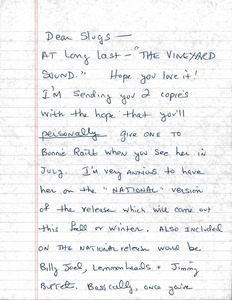 Dear Slugs —
AT Long last — "THE VINEYARD
SOUND." Hope you love it!
I'm Sending you 2 copies
with the hope that you'll
personally give one to
Bonnie Raitt when you see her in
July. I'm very anxious to have
her on the "NATIONAL" version
of the release which will come out
this fall or winter. ALSO included
ON THE NATIONAL release would be
Billy Joel, Lemonheads + Jimmy
Buffett. Basically, once you've